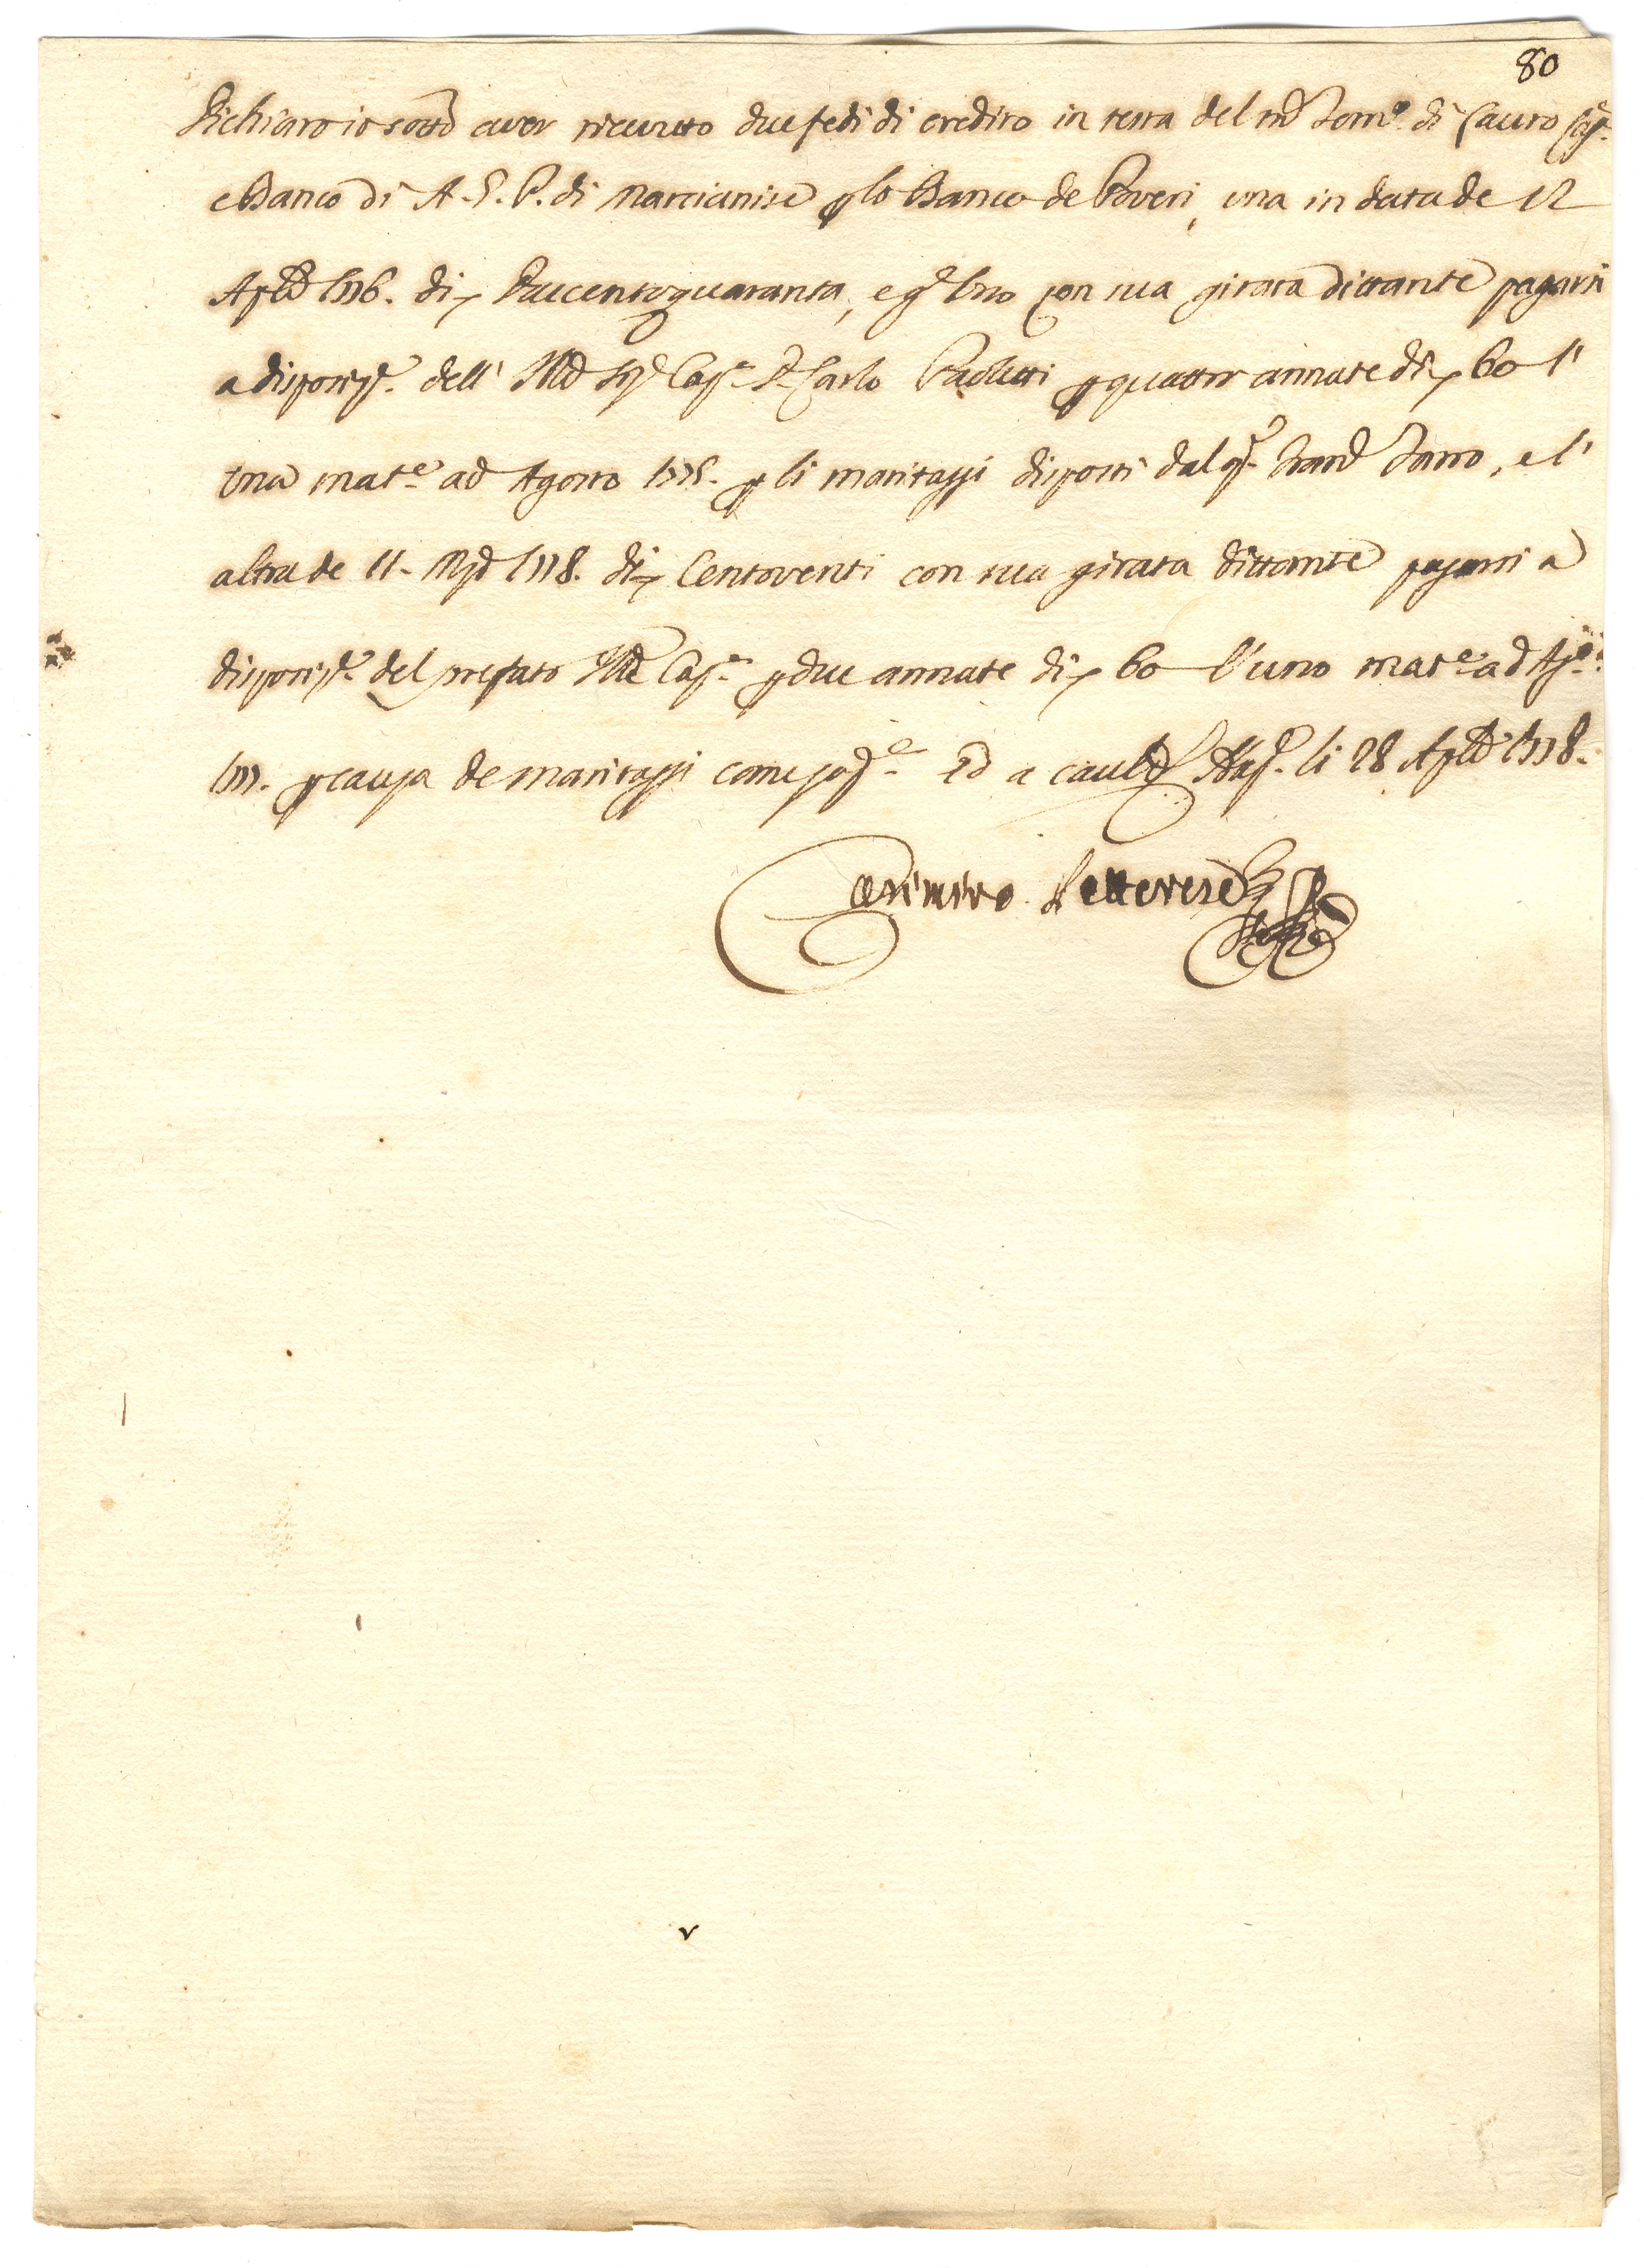 80
Dichiaro io sott.o aver ricevuto due fedi di credito in testa del m.o Dom.o di Lauro
e Banco di A. G. P. di Marcianise p lo Banco de Poveri, una in data de 12
Aple 1776. di Duecentoquaranta, e con sua girata dittante pagarsi
a disposiz.e dell' Ill.e Sig.e Cap.n D. Carlo Paolucci p quattro annate di 60 l'
una mat.e ad Agosto 1775. p li maritaggi disposti dal q.m Tarro, e l'
altra de 11. 1778. di Centoventi con sua girata dittante pagarsi a
disposiz.e del prefato Ill.e Cap.n p due annate di 60 l'una mat.e ad Ag.to
1777. p causa de maritaggi come sop.a Ed a caut.a Nap. li 28 Aple 1778.
Casimiro Letterese